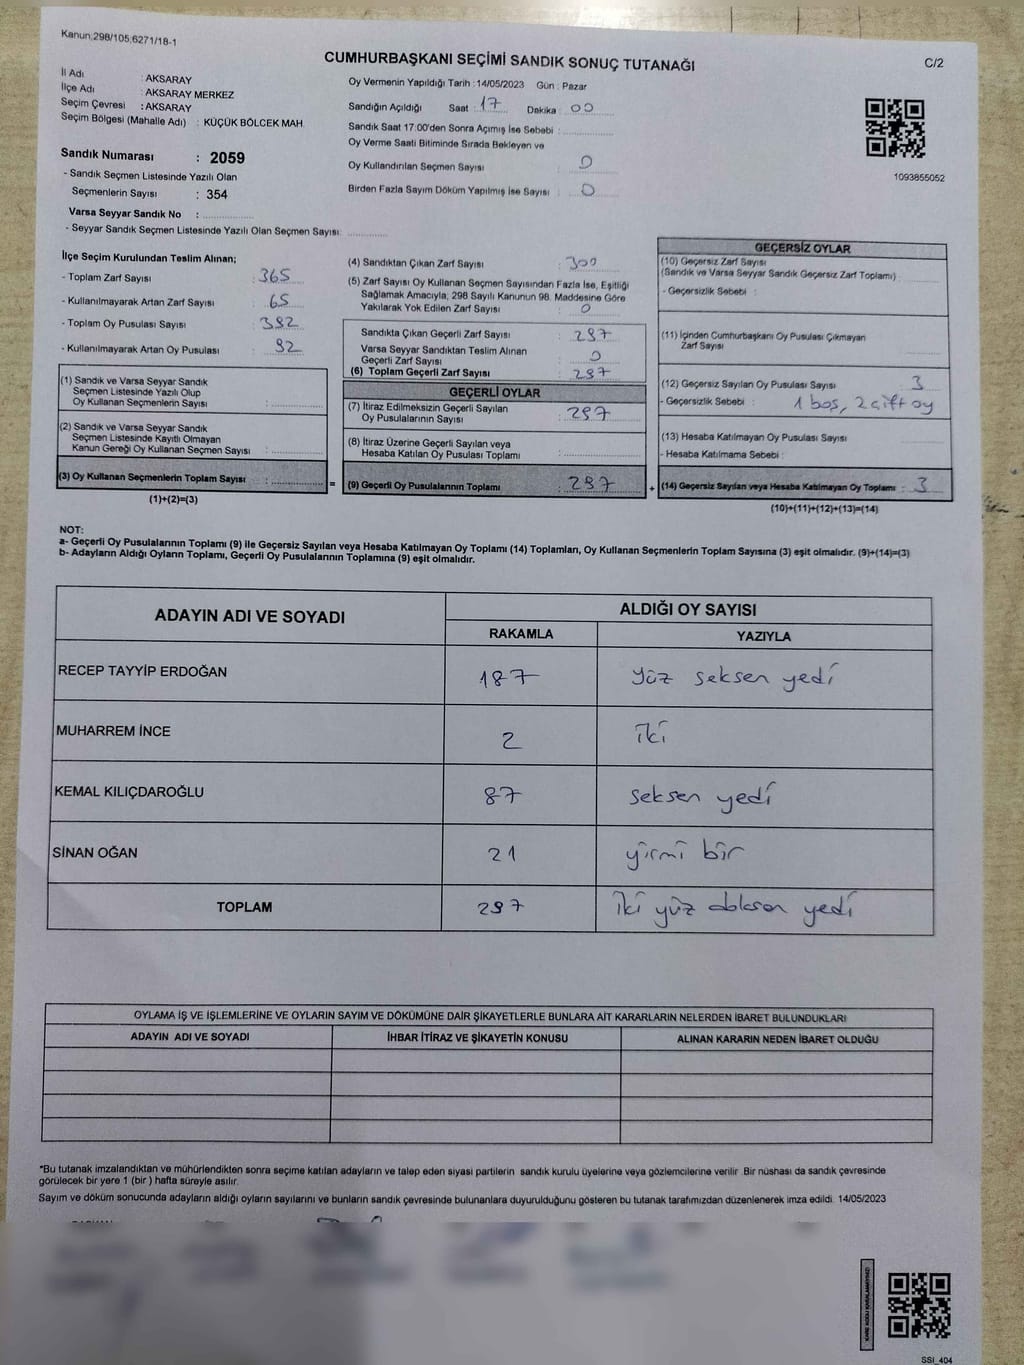 Kanun:298/105,6271/18-1
CUMHURBAŞKANI SEÇİMİ SANDIK SONUÇ TUTANAĞI
C/2
İl Adı : AKSARAY
İlçe Adı : AKSARAY MERKEZ
Seçim Çevresi : AKSARAY
Seçim Bölgesi (Mahalle Adı) : KÜÇÜK BÖLCEK MAH.
Sandık Numarası : 2059
- Sandık Seçmen Listesinde Yazılı Olan
Seçmenlerin Sayısı : 354
Varsa Seyyar Sandık No :
- Seyyar Sandık Seçmen Listesinde Yazılı Olan Seçmen Sayısı:
Oy Vermenin Yapıldığı Tarih : 14/05/2023 Gün : Pazar
Sandığın Açıldığı Saat : 17 Dakika : 00
Sandık Saat 17:00'den Sonra Açımış İse Sebebi :
Oy Verme Saati Bitiminde Sırada Bekleyen ve
Oy Kullandırılan Seçmen Sayısı : 0
Birden Fazla Sayım Döküm Yapılmış İse Sayısı : 0
1093855052
İlçe Seçim Kurulundan Teslim Alınan;
- Toplam Zarf Sayısı : 365
- Kullanılmayarak Artan Zarf Sayısı : 65
- Toplam Oy Pusulası Sayısı : 392
- Kullanılmayarak Artan Oy Pusulası : 92
(1) Sandık ve Varsa Seyyar Sandık
Seçmen Listesinde Yazılı Olup
Oy Kullanan Seçmenlerin Sayısı :
(2) Sandık ve Varsa Seyyar Sandık
Seçmen Listesinde Kayıtlı Olmayan
Kanun Gereği Oy Kullanan Seçmen Sayısı :
(3) Oy Kullanan Seçmenlerin Toplam Sayısı :
(1)+(2)=(3)
=
(4) Sandıktan Çıkan Zarf Sayısı : 300
(5) Zarf Sayısı Oy Kullanan Seçmen Sayısından Fazla İse, Eşitliği
Sağlamak Amacıyla, 298 Sayılı Kanunun 98. Maddesine Göre
Yakılarak Yok Edilen Zarf Sayısı : 0
Sandıkta Çıkan Geçerli Zarf Sayısı : 297
Varsa Seyyar Sandıktan Teslim Alınan
Geçerli Zarf Sayısı : 0
(6) Toplam Geçerli Zarf Sayısı : 297
GEÇERLİ OYLAR
(7) İtiraz Edilmeksizin Geçerli Sayılan
Oy Pusulalarının Sayısı : 297
(8) İtiraz Üzerine Geçerli Sayılan veya
Hesaba Katılan Oy Pusulası Toplamı :
(9) Geçerli Oy Pusulalarının Toplamı : 297
+
GEÇERSİZ OYLAR
(10) Geçersiz Zarf Sayısı
(Sandık ve Varsa Seyyar Sandık Geçersiz Zarf Toplamı)
- Geçersizlik Sebebi :
(11) İçinden Cumhurbaşkanı Oy Pusulası Çıkmayan
Zarf Sayısı
(12) Geçersiz Sayılan Oy Pusulası Sayısı : 3
- Geçersizlik Sebebi : 1 boş, 2 çift oy
(13) Hesaba Katılmayan Oy Pusulası Sayısı
- Hesaba Katılmama Sebebi :
(14) Geçersiz Sayılan veya Hesaba Katılmayan Oy Toplamı : 3
(10)+(11)+(12)+(13)=(14)
NOT:
a- Geçerli Oy Pusulalarının Toplamı (9) ile Geçersiz Sayılan veya Hesaba Katılmayan Oy Toplamı (14) Toplamları, Oy Kullanan Seçmenlerin Toplam Sayısına (3) eşit olmalıdır. (9)+(14)=(3)
b- Adayların Aldığı Oyların Toplamı, Geçerli Oy Pusulalarının Toplamına (9) eşit olmalıdır.
ADAYIN ADI VE SOYADI
ALDIĞI OY SAYISI
RAKAMLA YAZIYLA
RECEP TAYYİP ERDOĞAN 187 yüz seksen yedi
MUHARREM İNCE 2 iki
KEMAL KILIÇDAROĞLU 87 seksen yedi
SİNAN OĞAN 21 yirmi bir
TOPLAM 297 iki yüz doksan yedi
OYLAMA İŞ VE İŞLEMLERİNE VE OYLARIN SAYIM VE DÖKÜMÜNE DAİR ŞİKAYETLERLE BUNLARA AİT KARARLARIN NELERDEN İBARET BULUNDUKLARI
ADAYIN ADI VE SOYADI İHBAR İTİRAZ VE ŞİKAYETİN KONUSU ALINAN KARARIN NEDEN İBARET OLDUĞU
*Bu tutanak imzalandıktan ve mühürlendikten sonra seçime katılan adayların ve talep eden siyasi partilerin sandık kurulu üyelerine veya gözlemcilerine verilir. Bir nüshası da sandık çevresinde
görülecek bir yere 1 (bir ) hafta süreyle asılır.
Sayım ve döküm sonucunda adayların aldığı oyların sayılarını ve bunların sandık çevresinde bulunanlara duyurulduğunu gösteren bu tutanak tarafımızdan düzenlenerek imza edildi. 14/05/2023
SSI_404